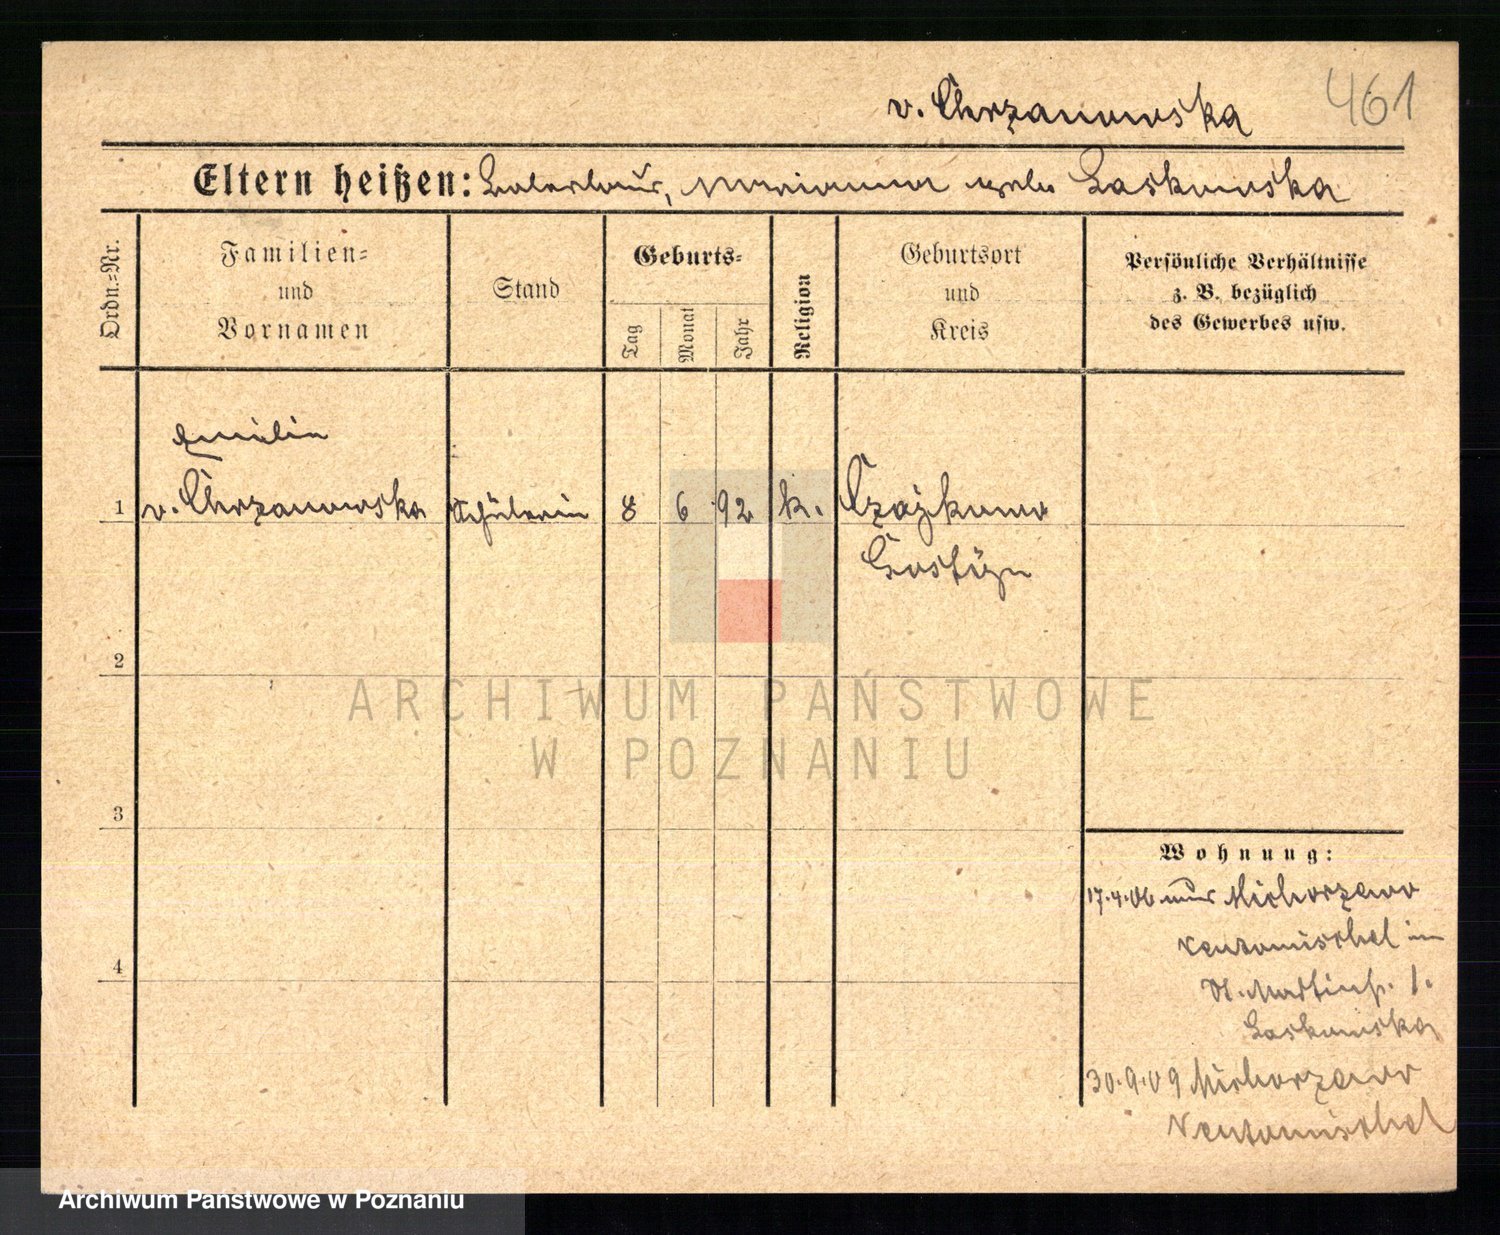 461
v. Chrzanowska
Eltern heißen: Ladislaus, Marianna geb. Laskowska
Ordn.-Nr.
Familien-
und
Vornamen
Stand
Geburts-
Tag
Monat
Jahr
Religion
Geburtsort
und
Kreis
Persönliche Verhältnisse
z. B. bezüglich
des Gewerbes usw.
Emilie
1 v. Chrzanowska Schülerin 8 6 92 k. Czajkowo
Gostyn
2
ARCHIWUM PAŃSTWOWE
W POZNANIU
3
Wohnung:
17.4.06 aus Michorzewo
Neutomischel in
St. Martinstr. 1.
4
Laskowska
30.9.09 Michorzewo
Neutomischel
Archiwum Państwowe w Poznaniu